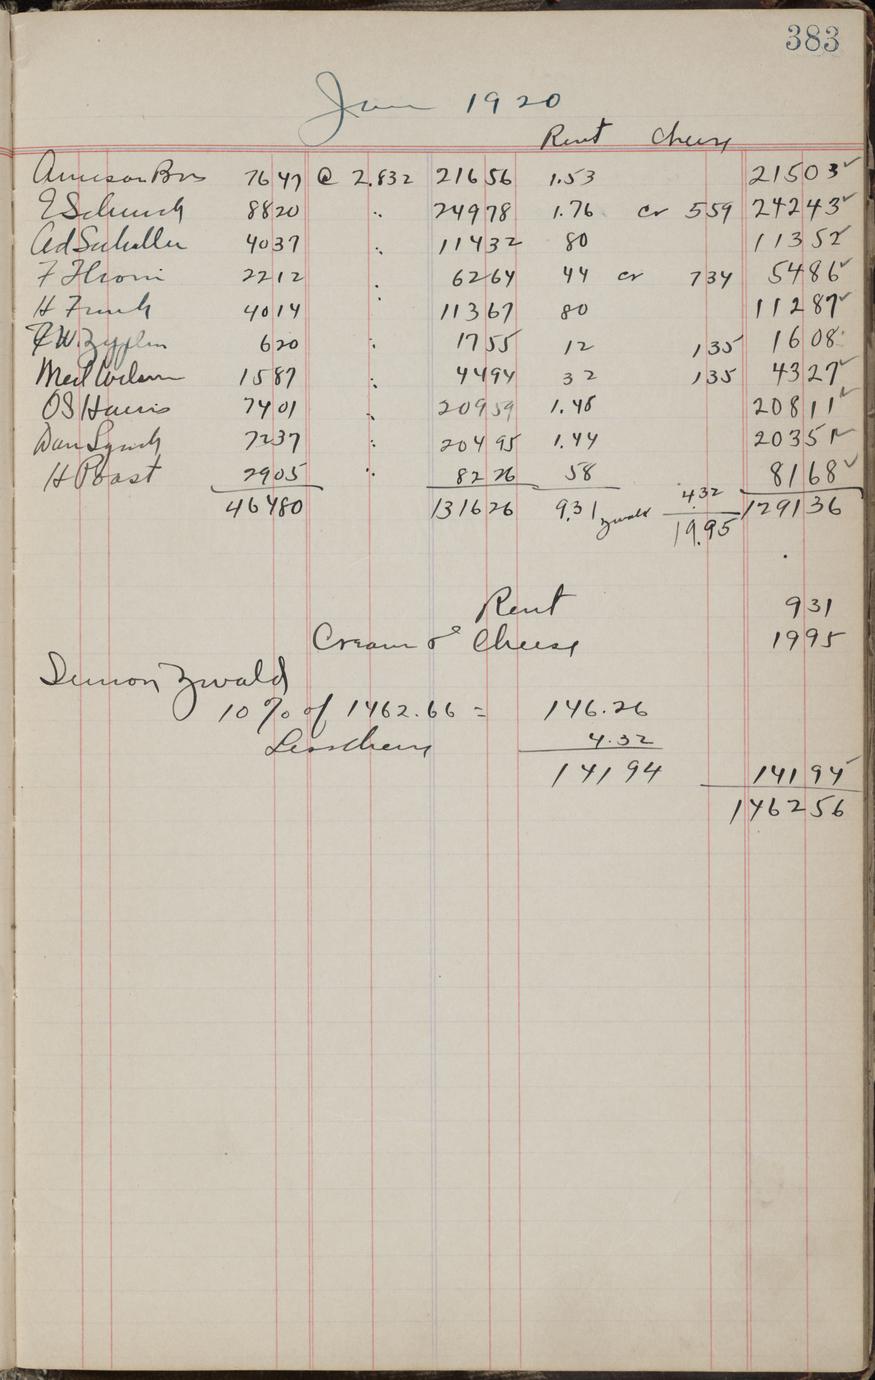 383
June 1920
Rent Cheese
Arneson Bros 7647 @ 2.832 21656 1.53 21503 ✓
E Schunck 8820 " 24978 1.76 cr 559 24243 ✓
Ad Schaller 4037 " 11432 80 11352 ✓
F 2212 " 6264 44 cr 734 5486 ✓
H Funk 4014 " 11367 80 11287 ✓
620 " 1755 12 135 1608
1587 " 4494 32 135 4327 ✓
OS Harris 7401 " 20959 1.48 20811 ✓
Dan Lynch 7237 " 20495 1.44 20351 ✓
H Poast 2905 " 8226 58 8168 ✓
46480 131626 9.31 Zwald 4.32 129136
19.95
Rent 931
Cream & Cheese 1995
Simon Zwald
10 % of 1462.66 = 146.26
Less Cheese 4.32
14194 14194 ✓
146256